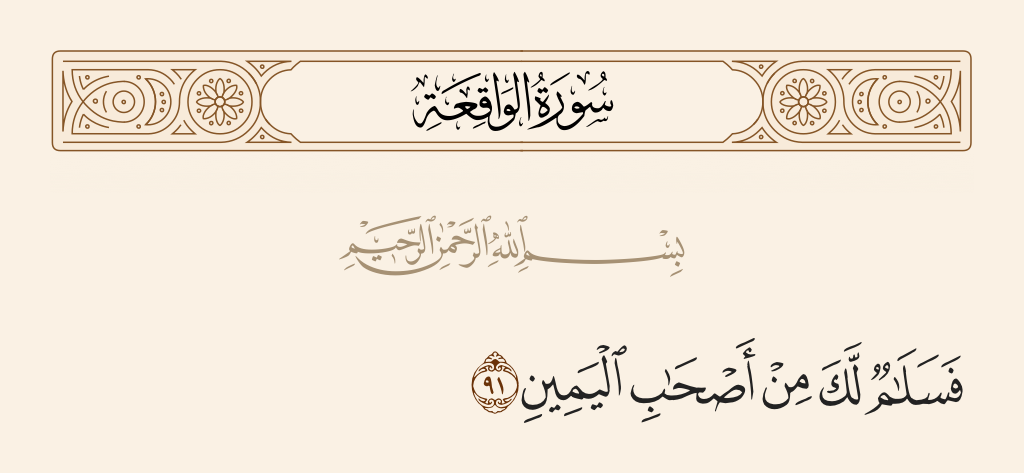 سُورَةُ الوَاقِعَةِ
بِسْمِ ٱللَّهِ ٱلرَّحْمَٰنِ ٱلرَّحِيمِ
فَسَلَٰمٌ لَّكَ مِنْ أَصْحَٰبِ ٱلْيَمِينِ ٩١